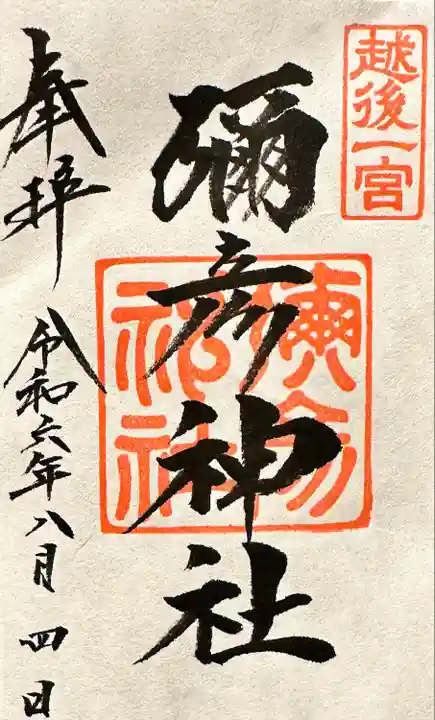 越後一宮
彌彦神社
彌彦神社
奉拝
令和六年八月四日